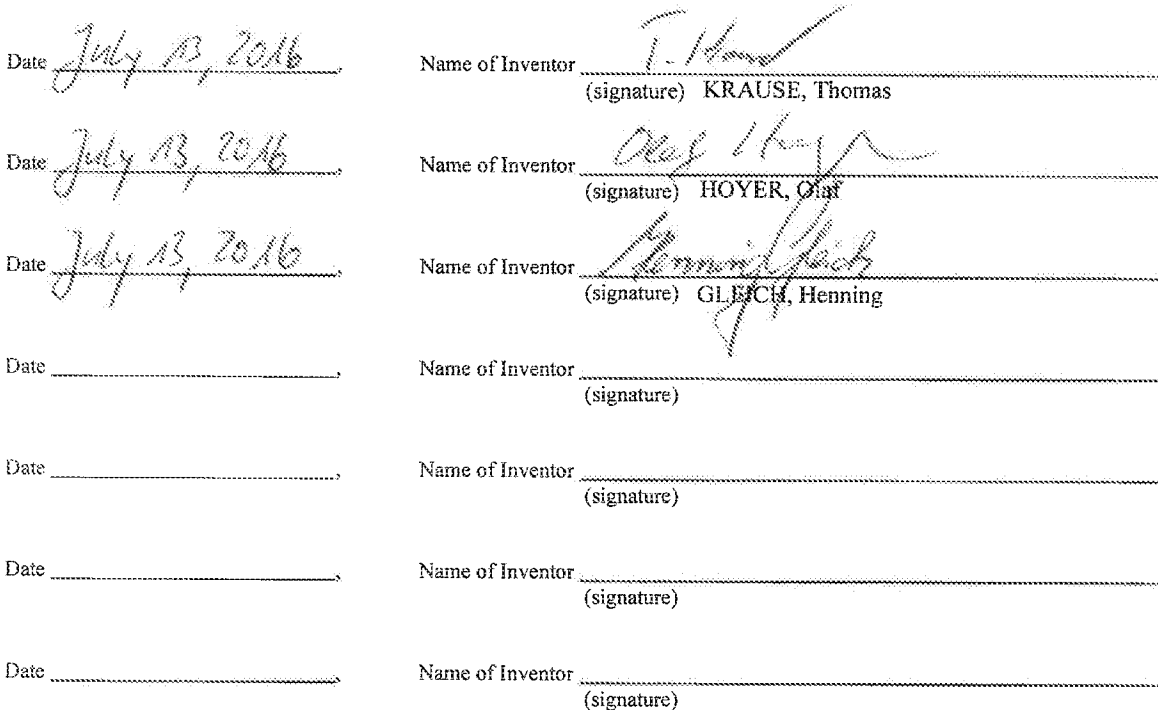 Date July 13, 2016, Name of Inventor T. Krause
(signature) KRAUSE, Thomas
Date July 13, 2016, Name of Inventor Olaf Hoyer
(signature) HOYER, Olaf
Date July 13, 2016, Name of Inventor Henning Gleich
(signature) GLEICH, Henning
Date , Name of Inventor
(signature)
Date , Name of Inventor
(signature)
Date , Name of Inventor
(signature)
Date , Name of Inventor
(signature)